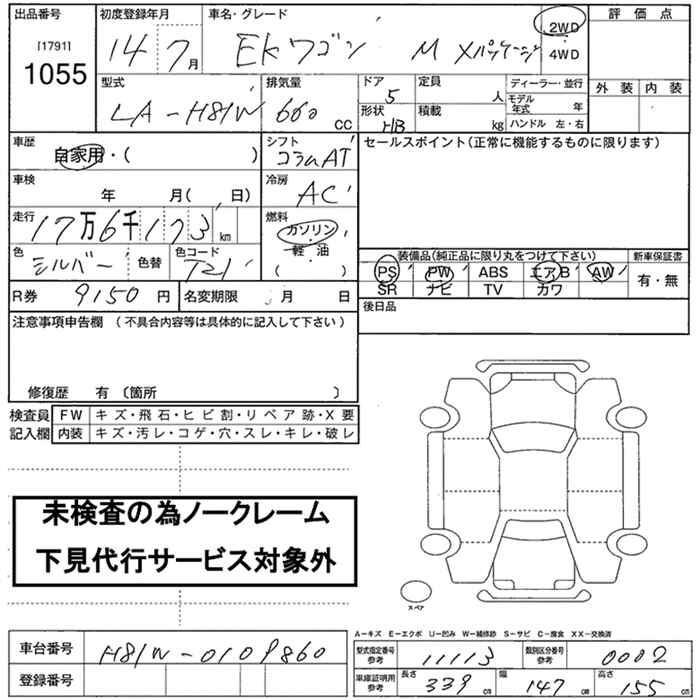 出品番号 初度登録年月 車名・グレード 2WD 評価点
[1791] 14 7月 EKワゴン M Xパッケージ 4WD
1055
型式 排気量 ドア 定員 ディーラー・並行 外装 内装
LA-H81W 660 CC 5 人 モデル年式 年
形状 積載 HB kg ハンドル 左・右
車歴 シフト セールスポイント(正常に機能するものに限ります)
自家用・( ) コラムAT
車検 冷房
年 月( 日) AC
走行 燃料
17万6千173km ガソリン
色 色替 色コード 軽・油
シルバー ( ) 装備品(純正品に限り丸をつけて下さい) 新車保証書
PS PW ABS エアB AW 有・無
R券 9150円 名変期限 月 日 SR ナビ TV カワ
注意事項申告欄 (不具合内容等は具体的に記入して下さい) 後日品
修復歴 有 〔箇所 〕
検査員 FW キズ・飛石・ヒビ割・リペア跡・X要
記入欄 内装 キズ・汚レ・コゲ・穴・スレ・キレ・破レ
未検査の為ノークレーム
下見代行サービス対象外
スペア
A-キズ E-エクボ U-凹み W-補修跡 S-サビ C-腐食 XX-交換済
車台番号 H81W-0109860 型式指定番号 参考 11113 類別区分番号 参考 0002
登録番号 車庫証明用 参考 長さ 339cm 幅 147cm 高さ 155cm